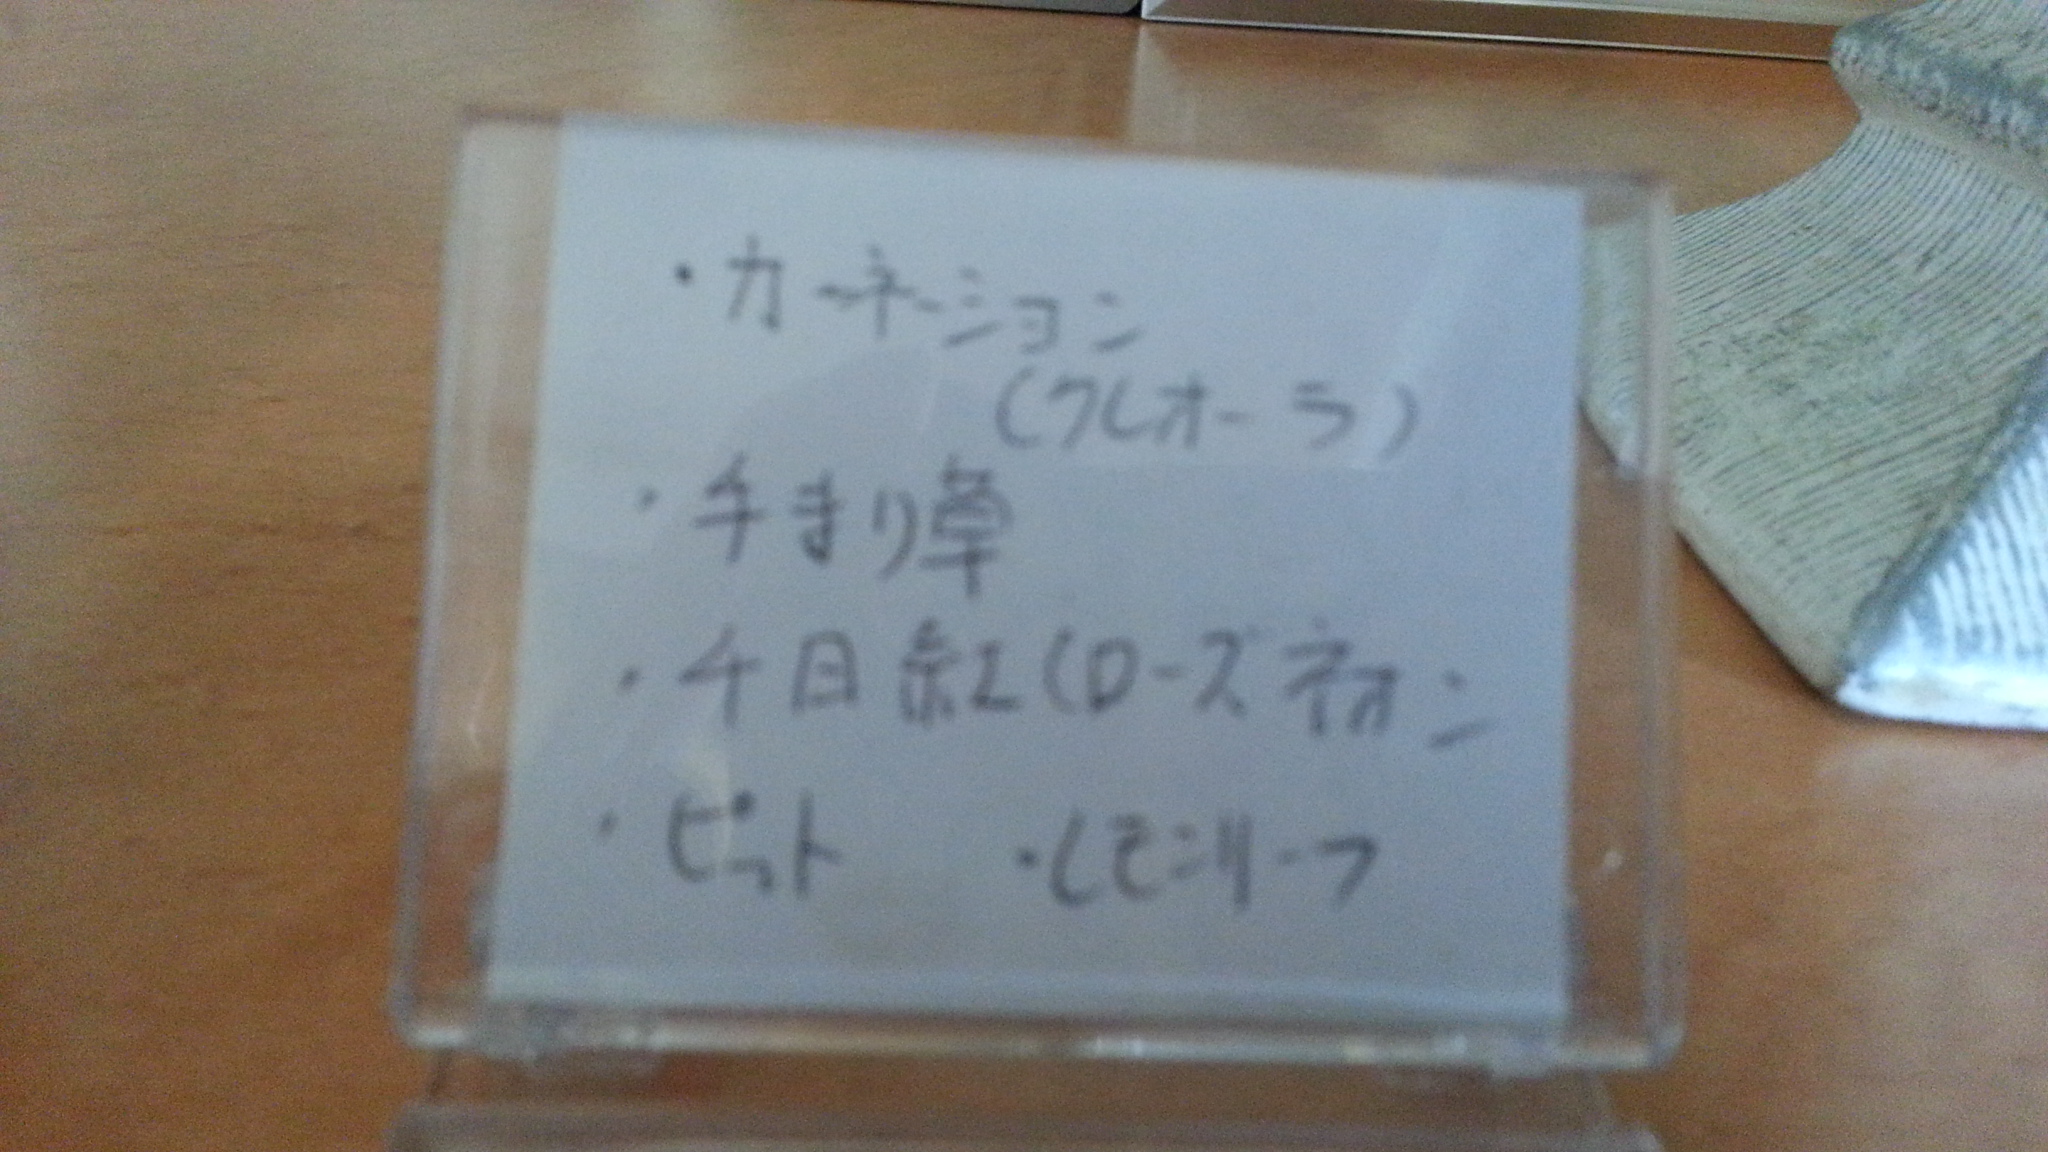 ・カーネーション
(クレオーラ)
・手まり草
・千日紅(ローズネオン
・ピット ・レモンリーフ